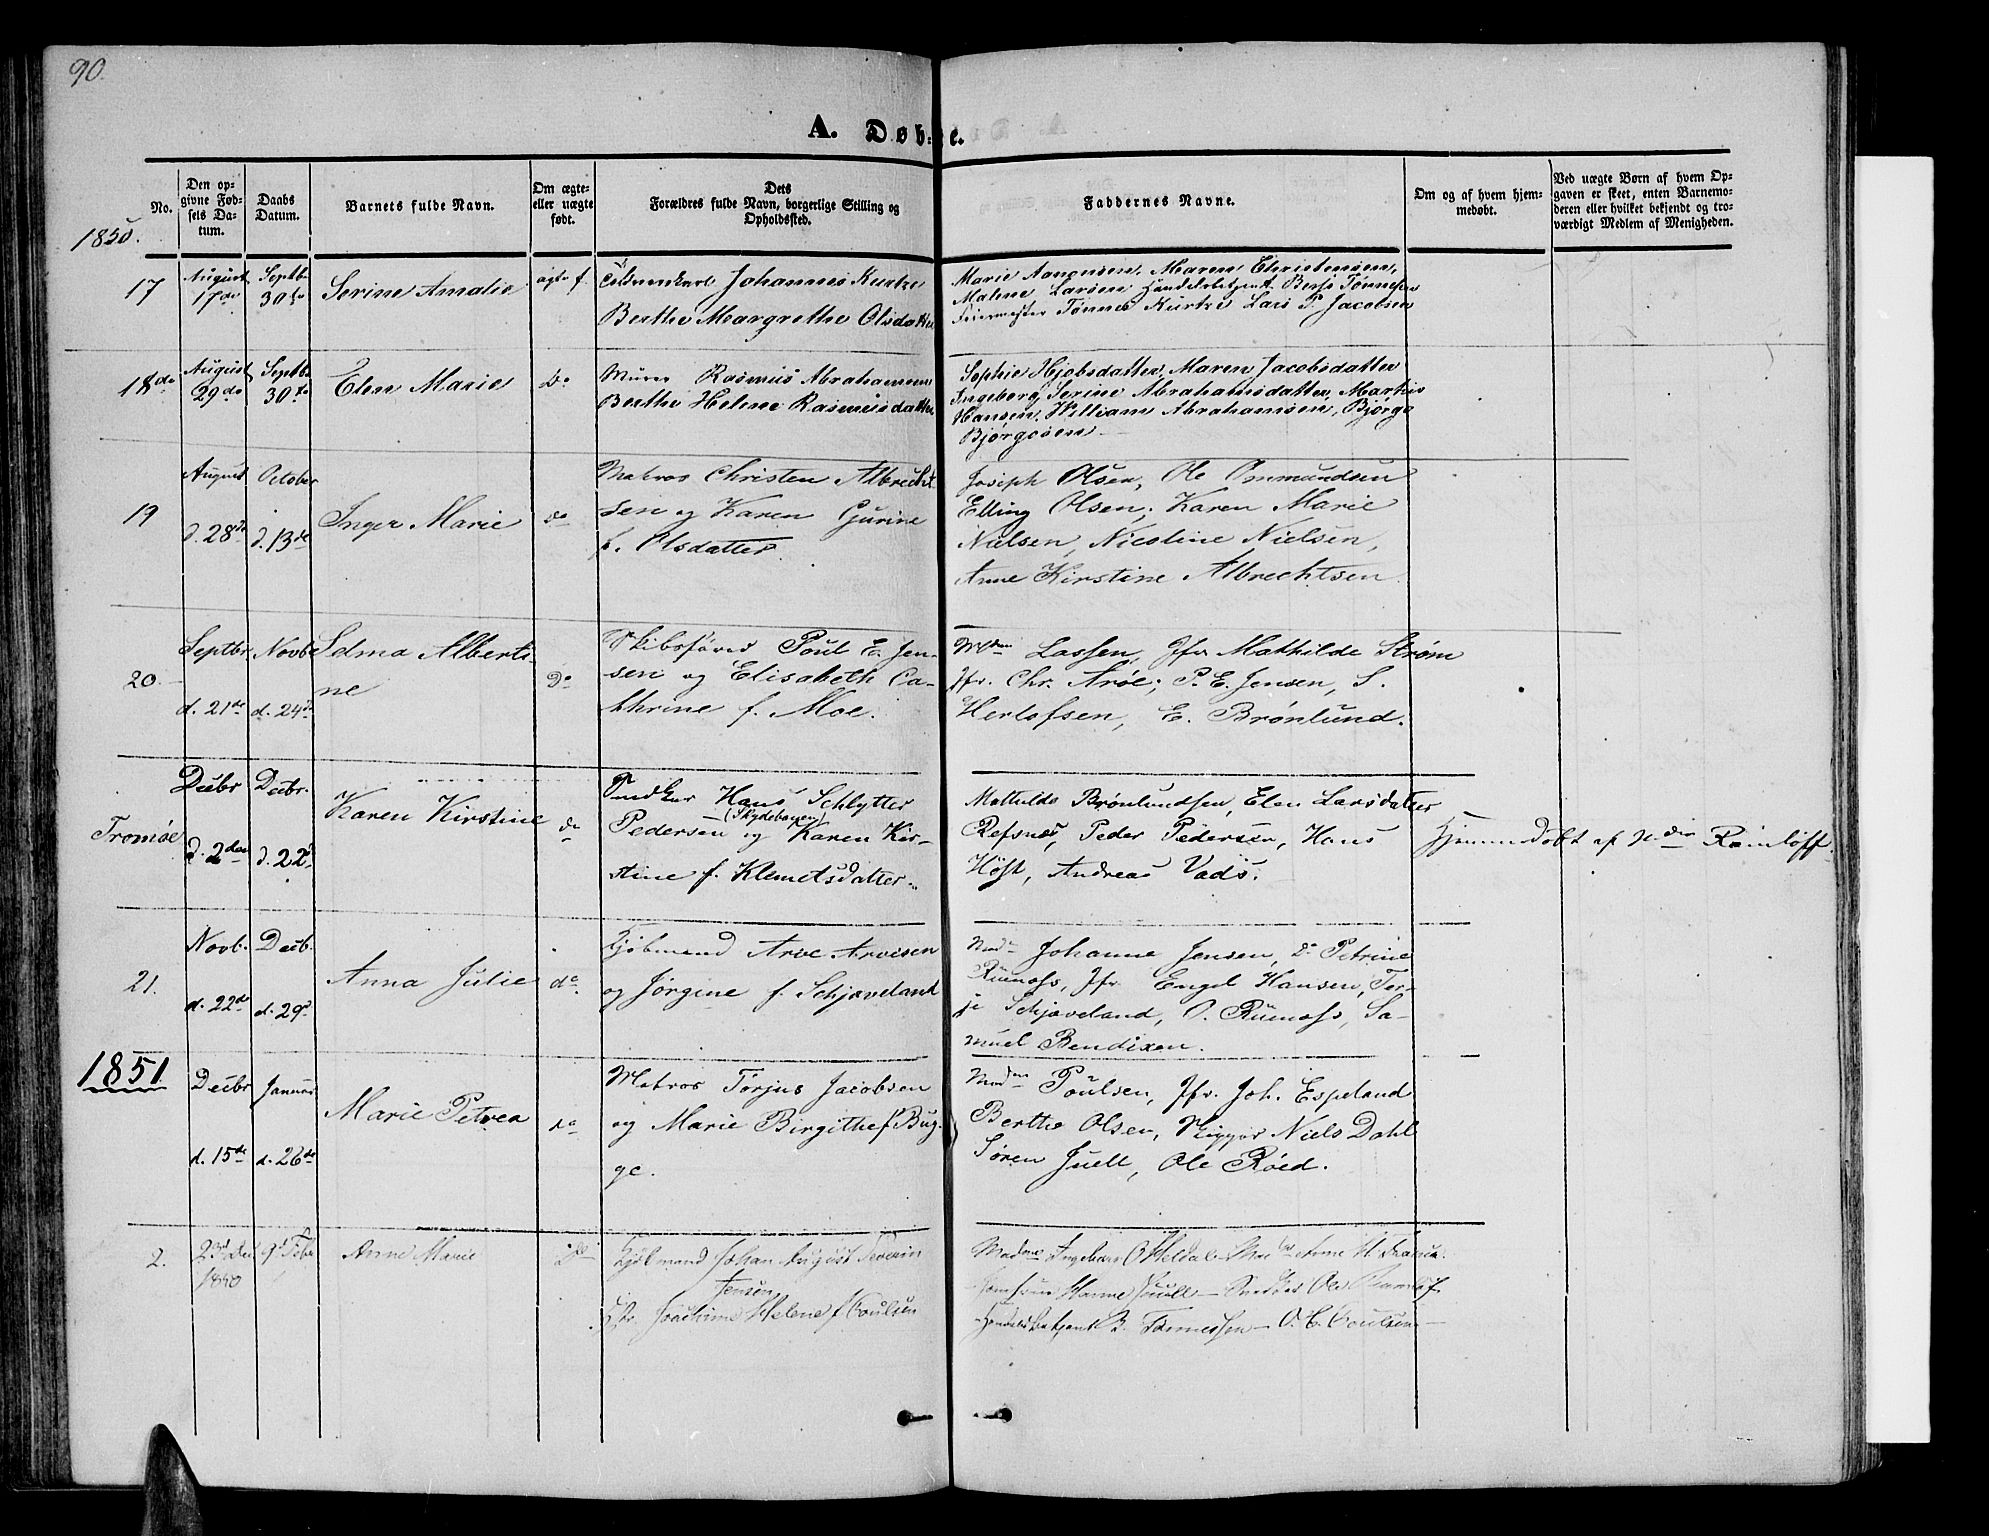 90.
A. Døb-te.
No.
Den opgivne Fødsels Datum.
Daabs Datum.
Barnets fulde Navn.
Om ægte- eller uægte født.
Dets Forældres fulde Navn, borgerlige Stilling og Opholdssted.
Faddernes Navne.
Om og af hvem hjemmedøbt.
Ved uægte Børn af hvem Opgaven er skeet, enten Barnemoderen eller hvilket bekjendt og troværdigt Medlem af Menigheden.
1850.
17
August 17de
Septbr 30te
Serine Amalie
ægte f.
Johannes Kurtze
Berthe Margrethe Olsdatter
Marie Aanonsen, Maren Christensen,
Malene Larsen Handelsbetjent Bent Tønnesen
Feiermester Tønnes Kurtze Lars P. Jacobsen
18de
August 29de
Septbr 30te
Elen Marie
Do
Murer Rasmus Abrahamsen
Berthe Helene Rasmusdatter
Sophie Hjobsdatter, Maren Jacobsdatter
Ingeborg Serine Abrahamsdatter, Markus
Hansen, William Abrahamsen, Bjørge
Bjørgesen
19
August d. 28de
October d. 13de
Inger Marie
do
Matros Christen Albrecht-
sen og Karen Gurine
f. Olsdatter.
Joseph Olsen, Ole Ommundsen
Elling Olsen, Karen Marie
Nielsen, Nicoline Nielsen,
Anne Kirstine Albrechtsen.
20.
Septbr. d. 21de
Novb. d. 24de
Selma Alberti-
ne
Do
Skibsfører Poul E. Jen-
sen og Elisabeth Ca-
thrine f. Moe.
Mdm Lassen, Jfr Mathilde Strøm
Jfr. Chr. Arøe, P. E. Jensen, S.
Herlofsen, E. Brønlund.
Tromøe
Decbr d. 2den
Decbr. d. 22d
Karen Kirstine
do
Snedker Hans Schlytter
(Skydebanen)
Pedersen og Karen Kir-
stine f. Klemetsdatter.
Mathilde Brønlundsen, Elen Larsdatter
Refsnes, Peder Pedersen, Hans
Høst, Andreas Vads.
Hjemmedøbt af
21.
Novb. d. 22de
Decb. d. 29d
Anna Julie
do
Kjøbmand Arve Arvesen
og Jørgine f. Schjaveland
Mdm Johanne Jensen, Do Petrine
Jfr. Engel Hansen, Ter-
je Schjaveland, O. Sa-
muel Bendixen.
1851
Decbr d. 15de
Januar d. 26de
Marie Petrea
do
Matros Torjus Jacobsen
og Marie Birgithe f Bug-
ge.
Poulsen, Jfr. Joh. Espeland
Berthe Olsen, Rigger Niels Dahl
Søren Juell, Ole Røed.
2.
23d Dec 1850
9d Febr
Anne Marie
Do
Kjøbmand Johan August Severin
Jensen
Joachime Helene f Poulsen
Madme Ingebor O Heldal
Jomfrue Hanne Juell
Handelsbetjent B. Tønnessen — O. C. Poulsen